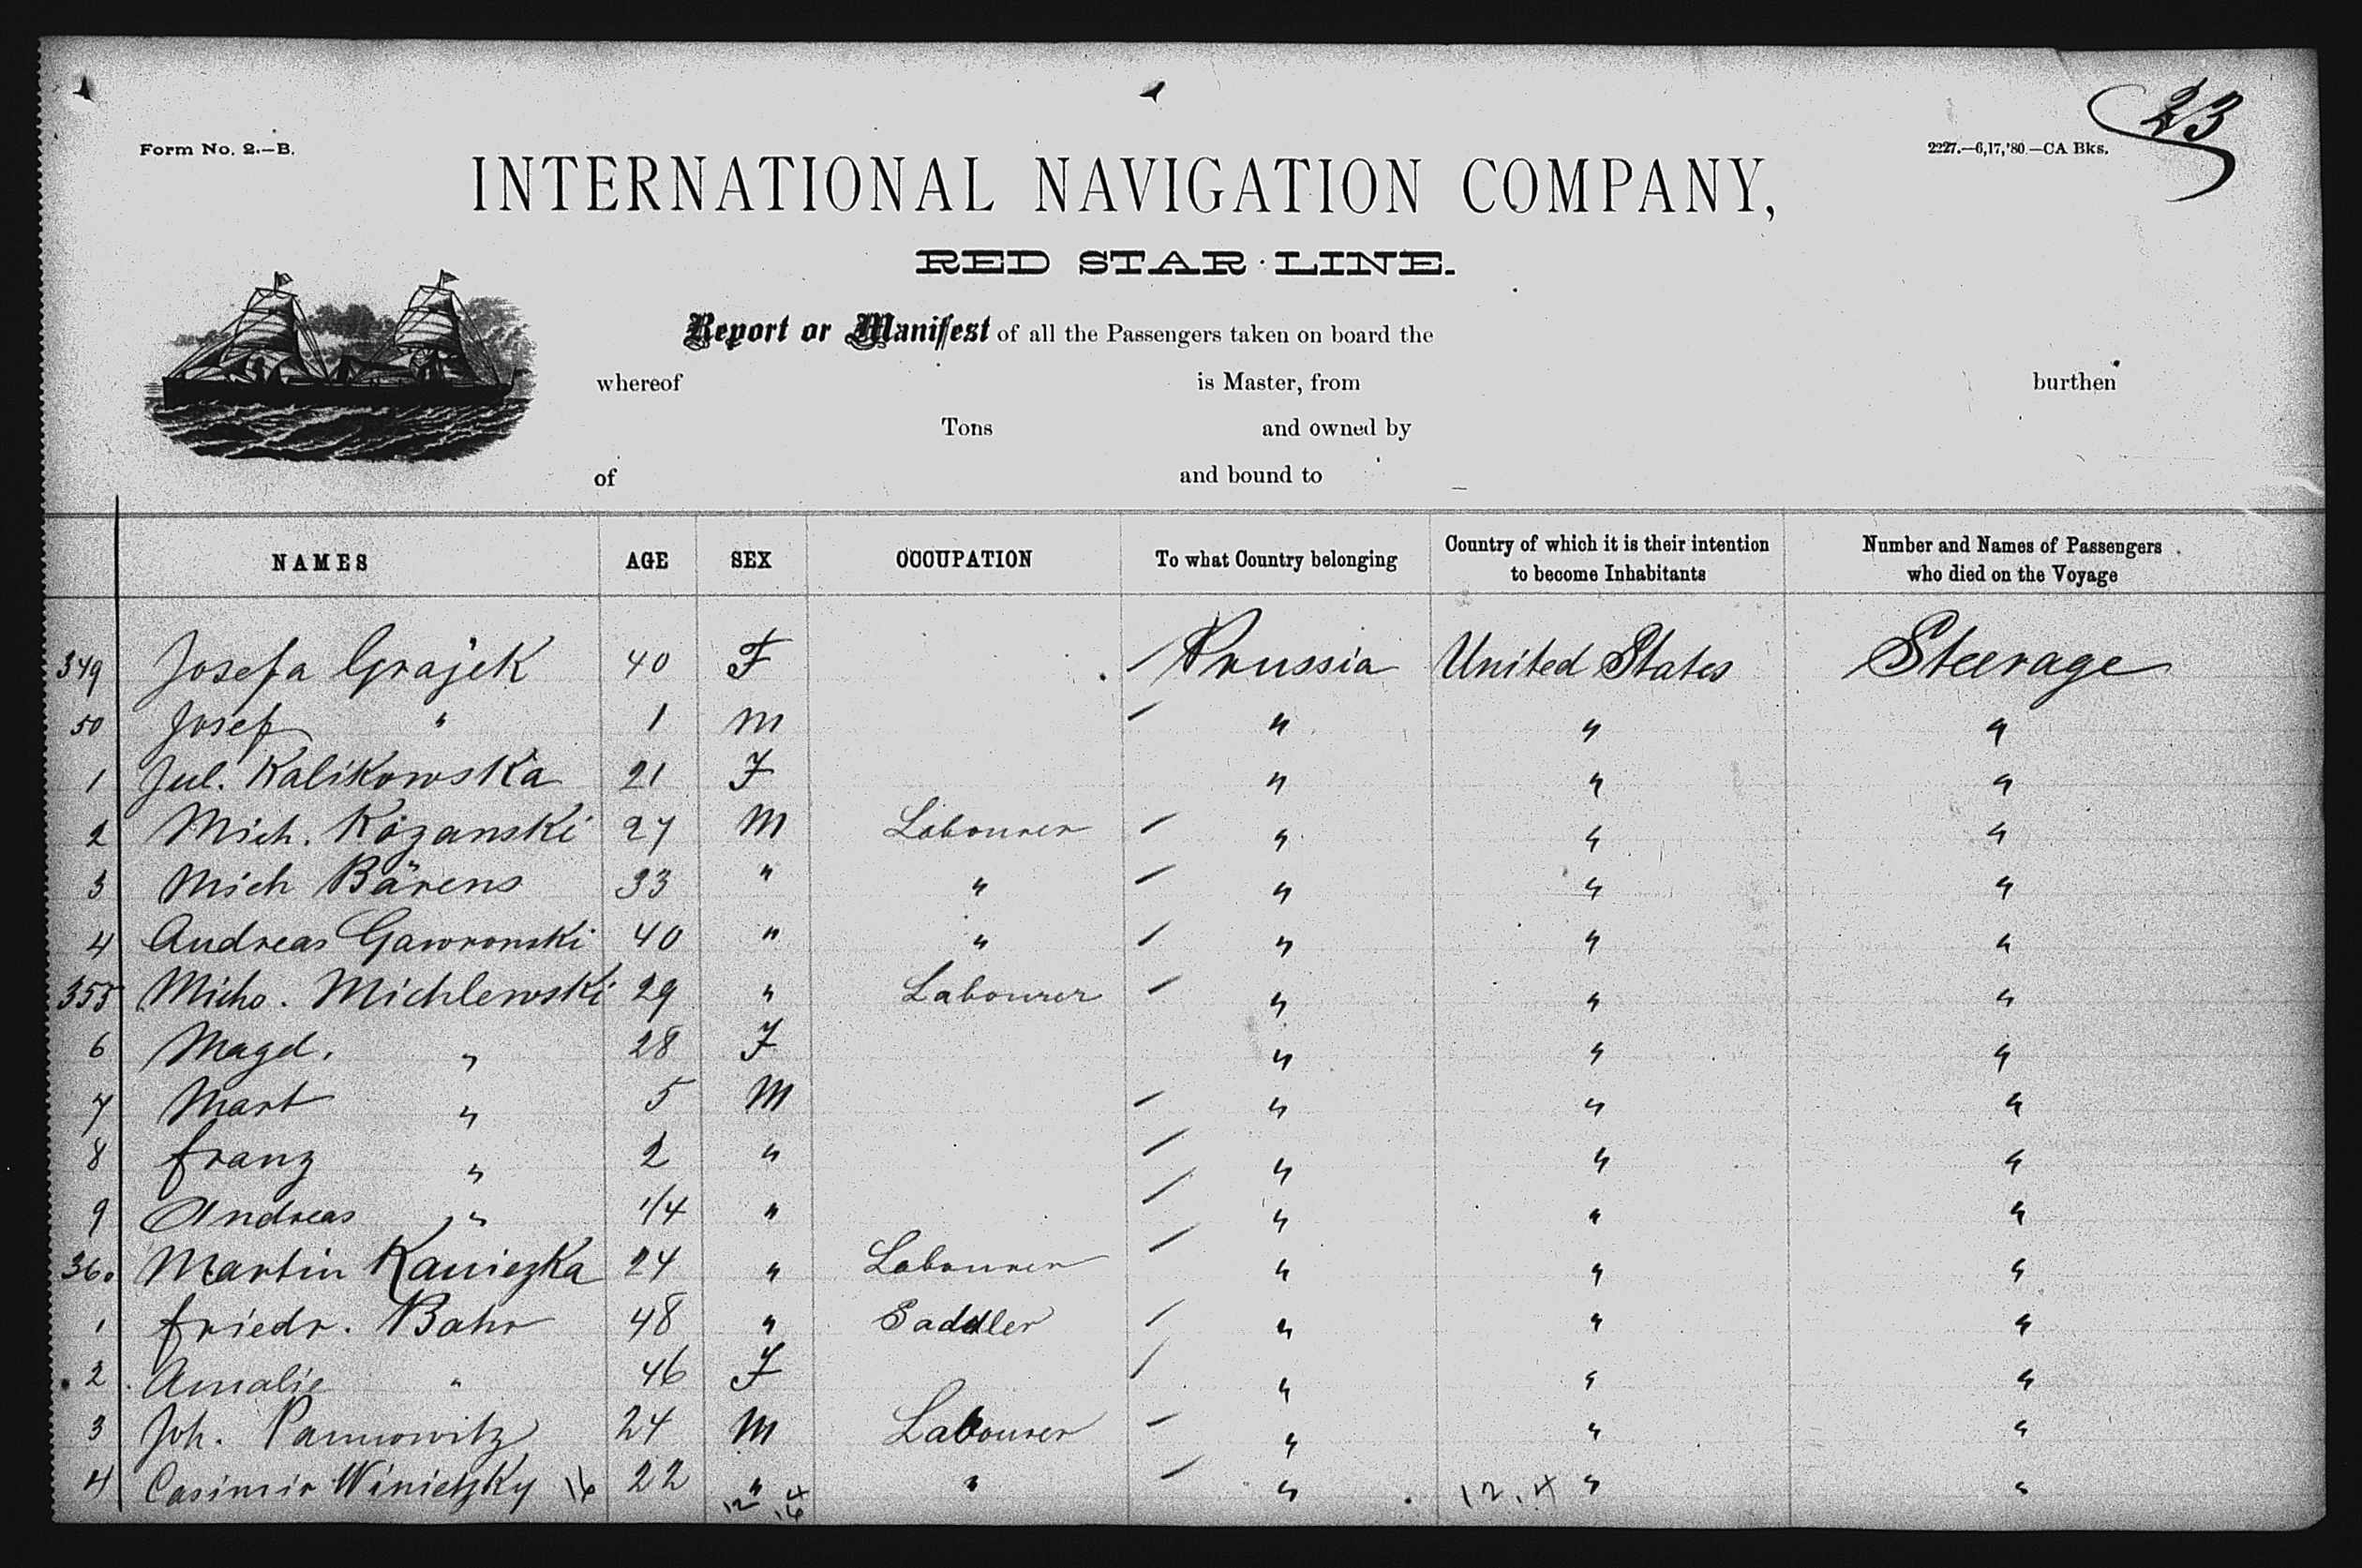 23
Form No. 2.—B.
2227.—6,17,'80.—CA Bks.
INTERNATIONAL NAVIGATION COMPANY,
RED STAR LINE.
Report or Manifest of all the Passengers taken on board the
whereof is Master, from burthen
Tons and owned by
of and bound to
NAMES AGE SEX OCCUPATION To what Country belonging Country of which it is their intention to become Inhabitants Number and Names of Passengers who died on the Voyage
349 Josefa Grajek 40 F / Prussia United States Steerage
50 Josef " 1 M / " " "
1 Jul. Kalikowska 21 F " " "
2 Mich. Rozanski 27 M Labourer / " " "
3 Mich Bärens 33 " " / " " "
4 Andreas Gawronski 40 " " / " " "
355 Micho. Michlewski 29 " Labourer / " " "
6 Magd. " 28 F " " "
7 Mart " 5 M / " " "
8 Franz " 2 " / " " "
9 Andreas " 1/4 " / " " "
360 Martin Kaniezka 24 " Labourer / " " "
1 Friedr. Bahr 48 " Saddler / " " "
2 Amalie " 46 F / " " "
3 Joh. Pannowitz 24 M Labourer / " " "
4 Casimir Winietzky 16 22 " " / " " "
12 4 16 12.4